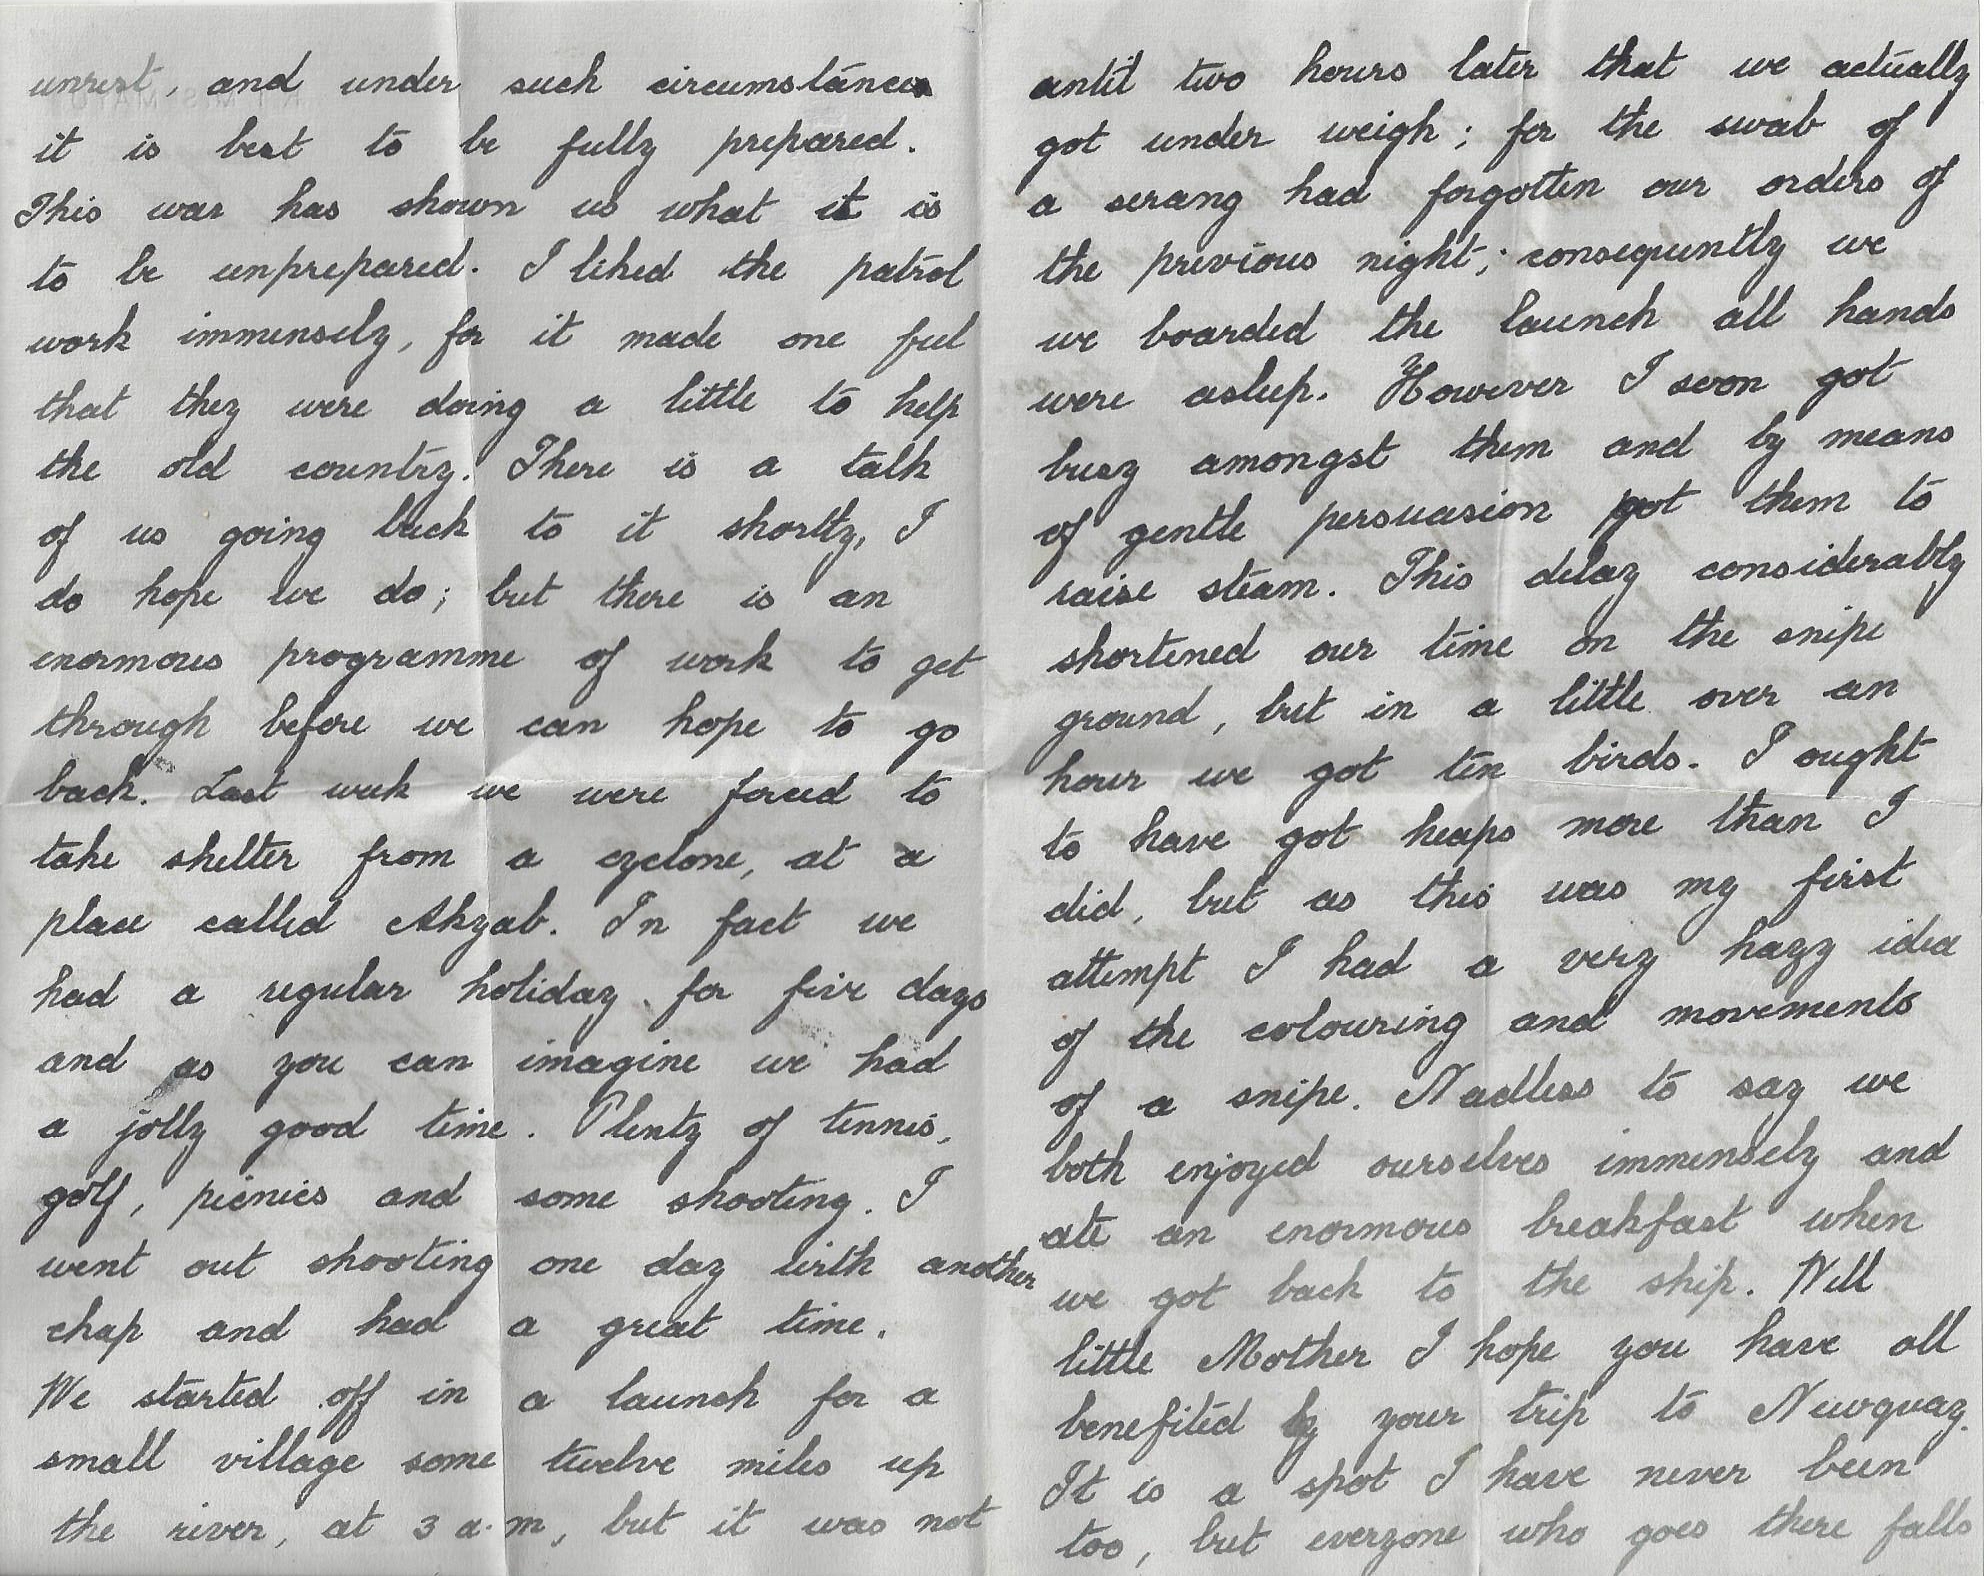 unrest, and under such circumstances
it is best to be fully prepared.
This war has shown us what it is
to be unprepared. I liked the patrol
work immensely, for it made one feel
that they were doing a little to help
the old country. There is a talk
of us going back to it shortly, I
do hope we do; but there is an
enormous programme of work to get
through before we can hope to go
back. Last week we were forced to
take shelter from a cyclone, at a
place called Akyab. In fact we
had a regular holiday for five days
and as you can imagine we had
a jolly good time. Plenty of tennis,
golf, picnics and some shooting. I
went out shooting one day with another
chap and had a great time.
We started off in a launch for a
small village some twelve miles up
the river, at 3 a.m, but it was not
until two hours later that we actually
got under weigh; for the swab of
a serang had forgotten our orders of
the previous night; consequently we
we boarded the launch all hands
were asleep. However I soon got
busy amongst them and by means
of gentle persuasion got them to
raise steam. This delay considerably
shortened our time on the snipe
ground, but in a little over an
hour we got ten birds. I ought
to have got heaps more than I
did, but as this was my first
attempt I had a very hazy idea
of the colouring and movements
of a snipe. Nedless to say we
both enjoyed ourselves immensely and
ate an enormous breakfast when
we got back to the ship. Well
little Mother I hope you have all
benefited by your trip to Newquay.
It is a spot I have never been
too, but everyone who goes there falls